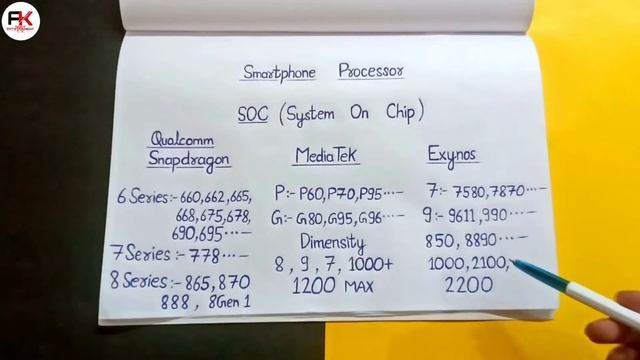 AK
Smartphone Processor
SOC (System On Chip)
Qualcomm
Snapdragon
6 Series:- 660, 662, 665,
668, 675, 678,
690, 695 ....-
7 Series:- 778 ....-
8 Series:- 865, 870
888 , 8Gen 1
MediaTek
P:- P60, P70, P95 ....-
G:- G80, G95, G96 ....-
Dimensity
8 , 9 , 7 , 1000+
1200 MAX
Exynos
7:- 7580, 7870 ....-
9:- 9611, 990 ....-
850 , 8890 ....-
1000, 2100,
2200